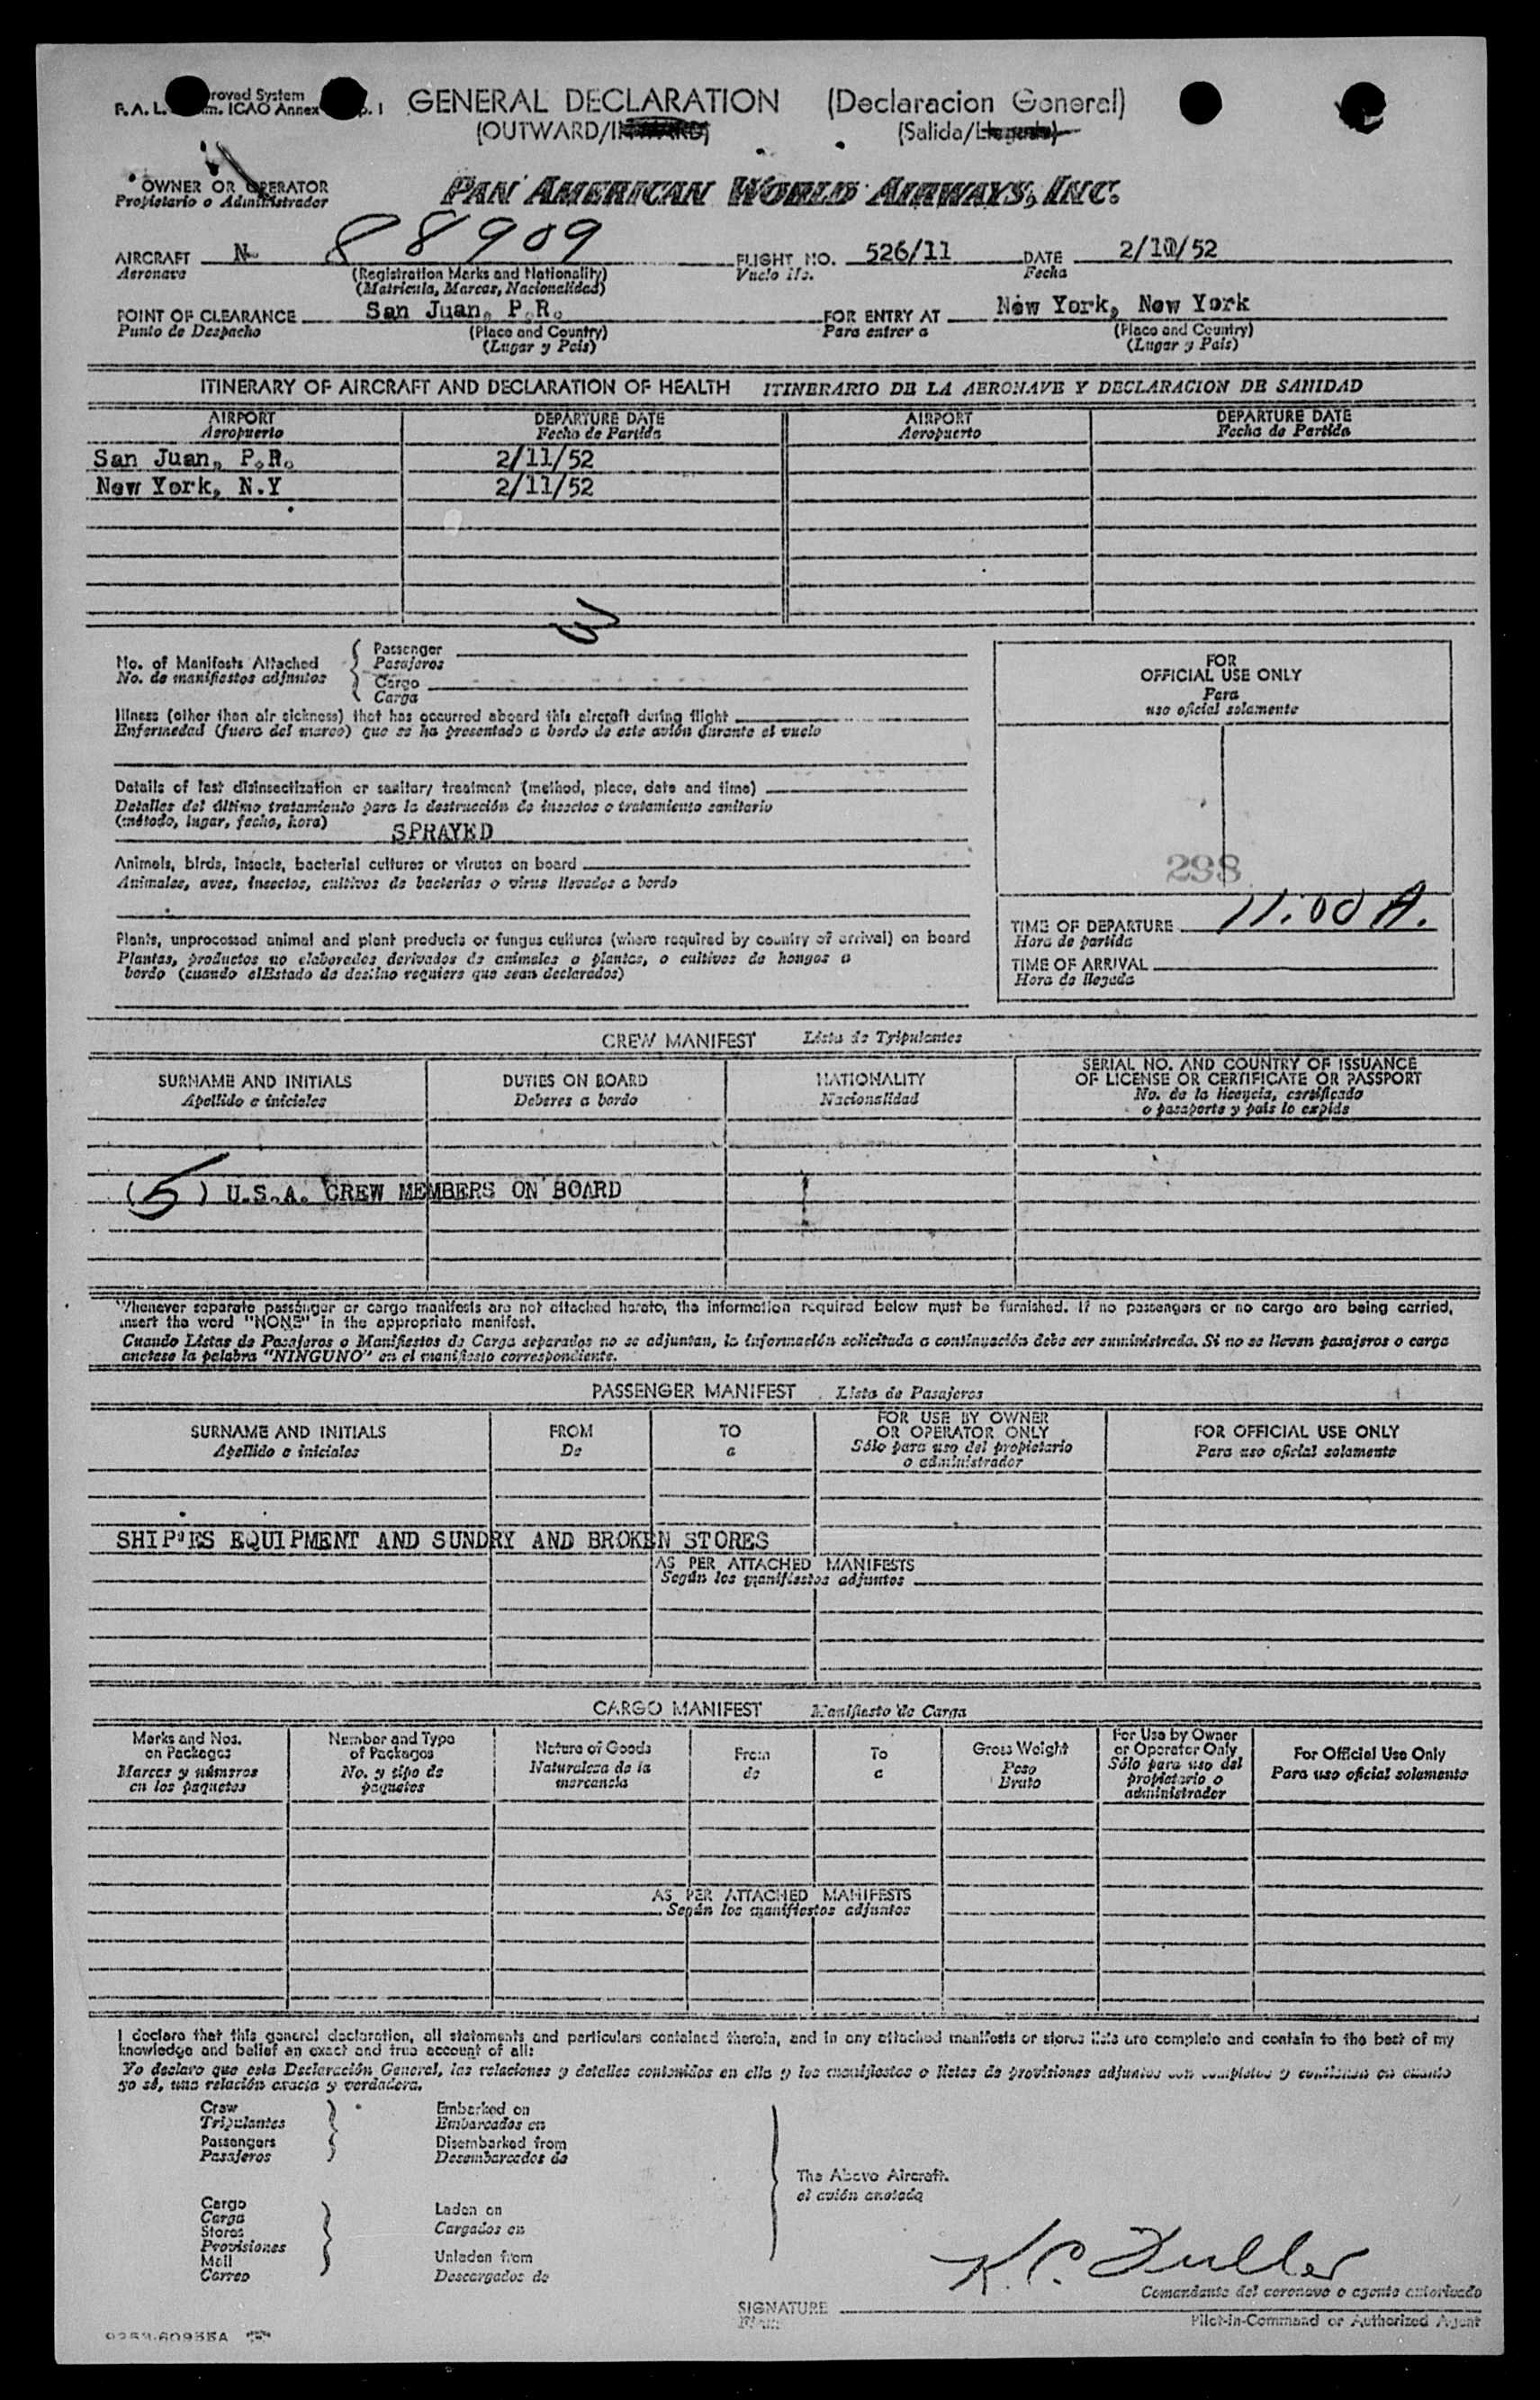 roved System
F. A. L. m. ICAO Annex p. 1
GENERAL DECLARATION (Declaracion General)
(OUTWARD/INWARD) (Salida/Llegada)
OWNER OR OPERATOR
Propietario o Administrador
PAN AMERICAN WORLD AIRWAYS, INC.
AIRCRAFT N 88909 FLIGHT NO. 526/11 DATE
Aeronave (Registration Marks and Nationality) Vuelo No. Fecha
(Matricula, Marcas, Nacionalidad)
POINT OF CLEARANCE San Juan, P.R. FOR ENTRY AT New York, New York
Punto de Despacho (Place and Country) Para entrar a (Place and Country)
(Lugar y Pais) (Lugar y Pais)
ITINERARY OF AIRCRAFT AND DECLARATION OF HEALTH ITINERARIO DE LA AERONAVE Y DECLARACION DE SANIDAD
AIRPORT DEPARTURE DATE AIRPORT DEPARTURE DATE
Aeropuerto Fecha de Partida Aeropuerto Fecha de Partida
San Juan, P.R. 2/11/52
New York, N.Y 2/11/52
No. of Manifests Attached
No. de manifiestos adjuntos
Passenger
Pasajeros
Cargo
Carga
Illness (other than air sickness) that has occurred aboard this aircraft during flight
Enfermedad (fuera del mareo) que se ha presentado a bordo de este avión durante el vuelo
Details of last disinsectization or sanitary treatment (method, place, date and time)
Detalles del último tratamiento para la destrucción de insectos o tratamiento sanitario
(método, lugar, fecha, hora) SPRAYED
Animals, birds, insects, bacterial cultures or viruses on board
Animales, aves, insectos, cultivos de bacterias o virus llevados a bordo
Plants, unprocessed animal and plant products or fungus cultures (where required by country of arrival) on board
Plantas, productos no elaborados derivados de animales o plantas, o cultivos de hongos a
bordo (cuando elEstado de destino requiere que sean declarados)
FOR
OFFICIAL USE ONLY
Para
uso oficial solamente
298
TIME OF DEPARTURE 11:00 A.
Hora de partida
TIME OF ARRIVAL
Hora de llegada
CREW MANIFEST Lista de Tripulantes
SURNAME AND INITIALS DUTIES ON BOARD NATIONALITY SERIAL NO. AND COUNTRY OF ISSUANCE
OF LICENSE OR CERTIFICATE OR PASSPORT
Apellido e iniciales Deberes a bordo Nacionalidad No. de la licencia, certificado
o pasaporte y pais lo expide
(5) U.S.A. CREW MEMBERS ON BOARD
Whenever separate passenger or cargo manifests are not attached hereto, the information required below must be furnished. If no passengers or no cargo are being carried,
insert the word "NONE" in the appropriate manifest.
Cuando Listas de Pasajeros o Manifiestos de Carga separados no se adjuntan, la información solicitada a continuación debe ser suministrada. Si no se llevan pasajeros o carga
anotese la palabra "NINGUNO" en el manifiesto correspondiente.
PASSENGER MANIFEST Lista de Pasajeros
SURNAME AND INITIALS FROM TO FOR USE BY OWNER
OR OPERATOR ONLY FOR OFFICIAL USE ONLY
Apellido e iniciales De a Sólo para uso del propietario
o administrador Para uso oficial solamente
SHIP'ES EQUIPMENT AND SUNDRY AND BROKEN STORES
AS PER ATTACHED MANIFESTS
Según los manifiestos adjuntos
CARGO MANIFEST Manifiesto de Carga
Marks and Nos.
on Packages
Marcas y números
en los paquetes
Number and Type
of Packages
No. y tipo de
paquetes
Nature of Goods
Naturaleza de la
mercancia
From
de
To
a
Gross Weight
Peso
Bruto
For Use by Owner
or Operator Only
Sólo para uso del
propietario o
administrador
For Official Use Only
Para uso oficial solamente
AS PER ATTACHED MANIFESTS
Según los manifiestos adjuntos
I declare that this general declaration, all statements and particulars contained therein, and in any attached manifests or stores lists are complete and contain to the best of my
knowledge and belief an exact and true account of all:
Yo declaro que esta Declaración General, las relaciones y detalles contenidos en ella y los manifiestos o listas de provisiones adjuntos son completos y contienen en cuanto
yo sé, una relación exacta y verdadera.
Crew
Tripulantes
Passengers
Pasajeros
Embarked on
Embarcados en
Disembarked from
Desembarcados de
Cargo
Carga
Stores
Provisiones
Mail
Correo
Laden on
Cargados en
Unladen from
Descargados de
The Above Aircraft.
el avión anotado
K. C. Fuller
Comandante del aeronave o agente autorizado
SIGNATURE
Firma
Pilot-in-Command or Authorized Agent